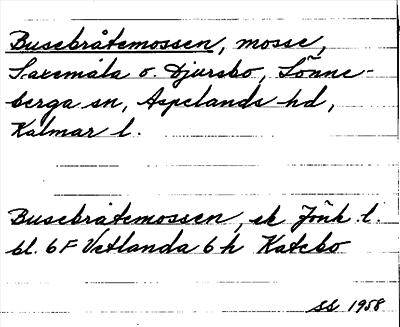 Busebråtemossen, mosse,
Saxemåla o. Djursbo, Lönne-
berga sn, Aspelands hd,
Kalmar l.
Busebråtemossen, ek Jönk l.
bl. 6F Vetlanda 6 h Katebo
SS 1958